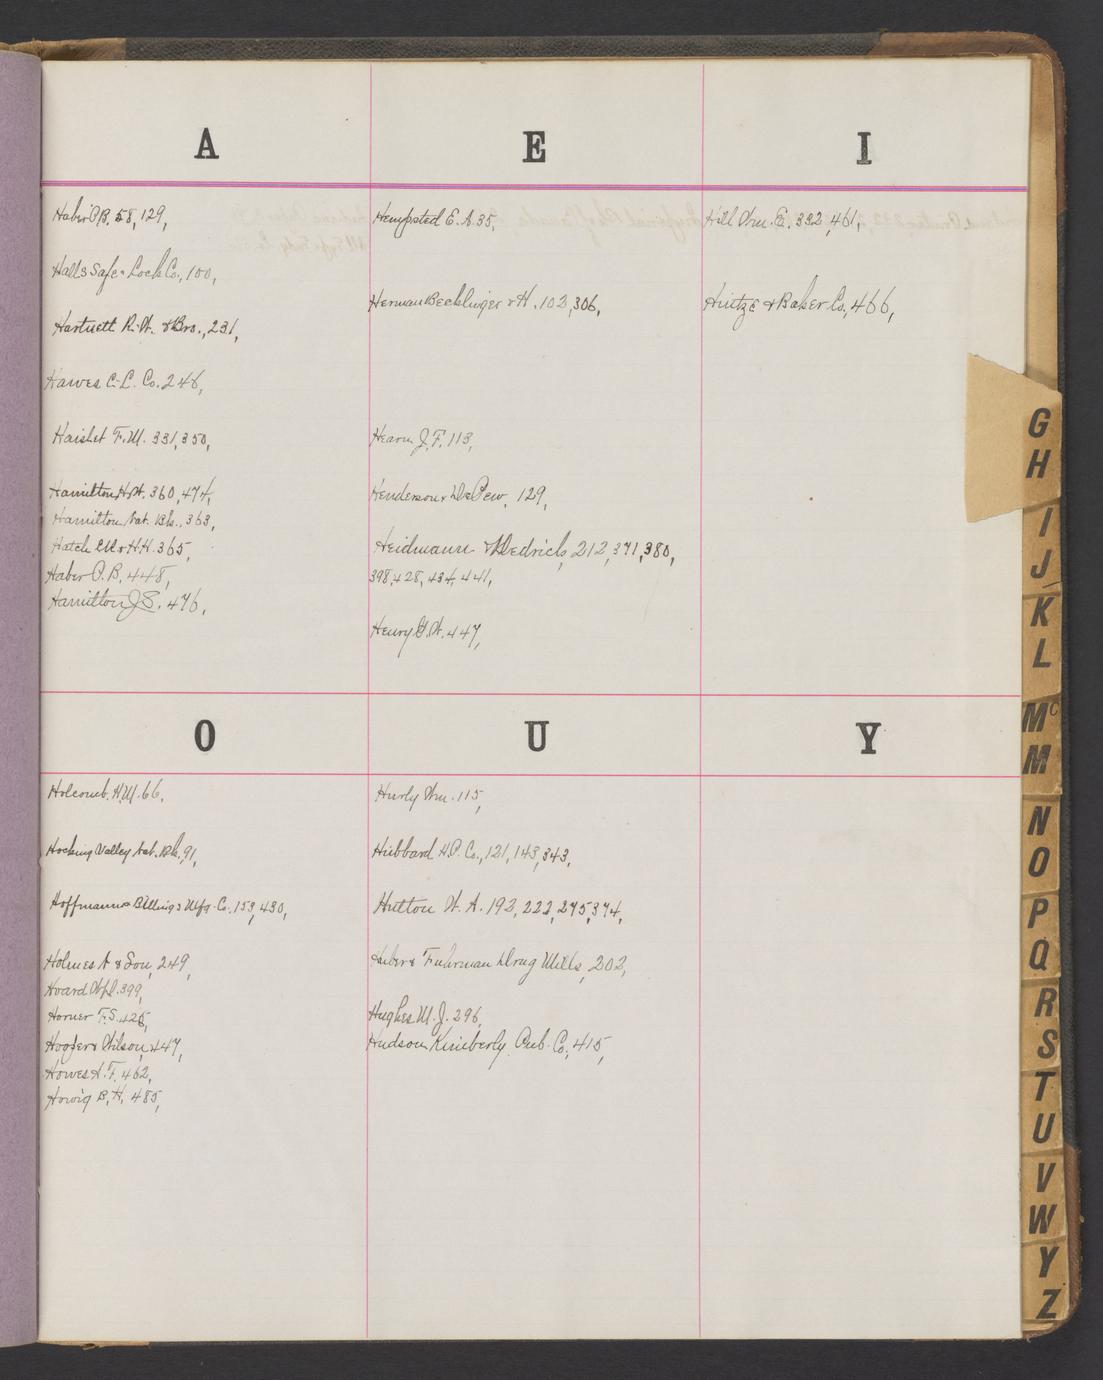 A
Haber P.B. 58, 129,
Halls Safe & Lock Co., 100,
Hartnett R.W. & Bro., 231,
Hawes C.L. Co. 246,
Haislet F.M. 331, 350,
Hamilton H.H. 360, 474,
Hamilton Nat. Bk., 363,
Hatch & H.H. 365,
Haber P.B. 448,
Hamilton J.S. 476,
E
Hempsted E.A. 35,
Herman & H. 102, 306,
Hearn J.F. 113,
Henderson & DePew, 129,
Heidmann & Dedrich, 212, 371, 380,
398, 428, 434, 441,
Henry W. 447,
I
Hill Wm. E. 332, 461,
Hintze & Baker Co., 466,
O
Holcomb H.M. 66,
Hocking Valley Nat. Bk. 91,
Hoffmann & Billings Mfg. Co. 153, 430,
Holmes A & Son, 249,
Hoard 399,
Horner F.S. 425,
Hoofer & Wilson, 447,
Howes A.F. 462,
Howig B.H. 485,
U
Hurly Wm. 115,
Hubbard H.P. Co., 121, 143, 343,
Hutton W.A. 192, 222, 275, 374,
Huber & Fuhrman Drug Mills, 202,
Hughes M.J. 296,
Hudson Kimberly Pub. Co., 415,
Y
G
H
I
J
K
L
Mc
M
N
O
P
Q
R
S
T
U
V
W
Y
Z